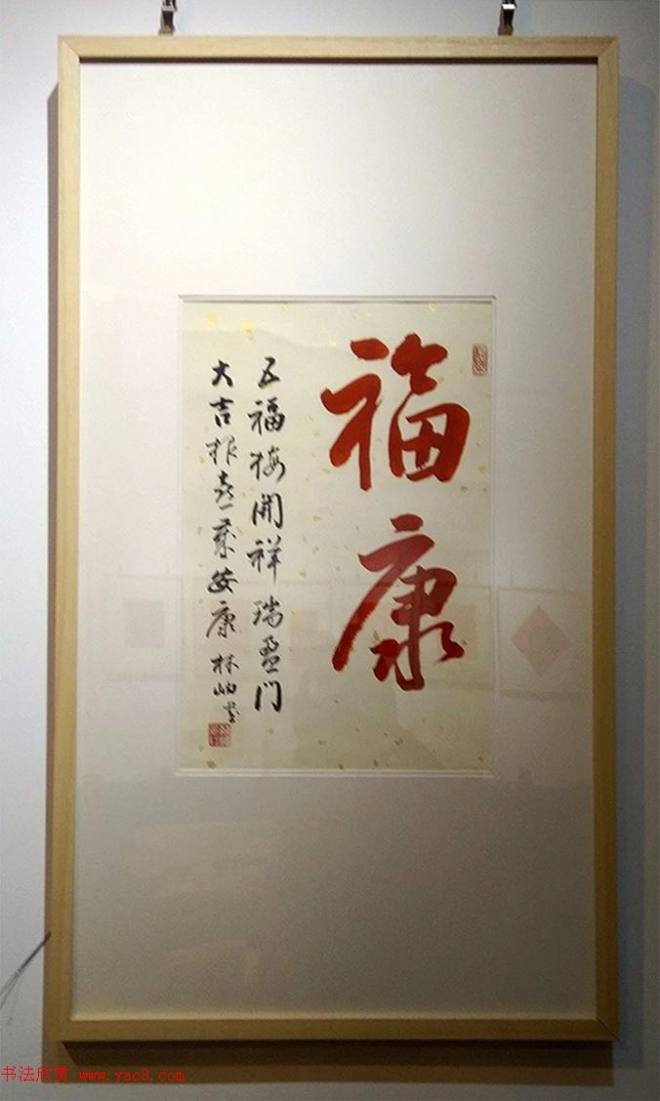 福康
五福梅開祥瑞盈门
大吉報喜一氣安康 林岫书
书法欣赏 www.yac8.com